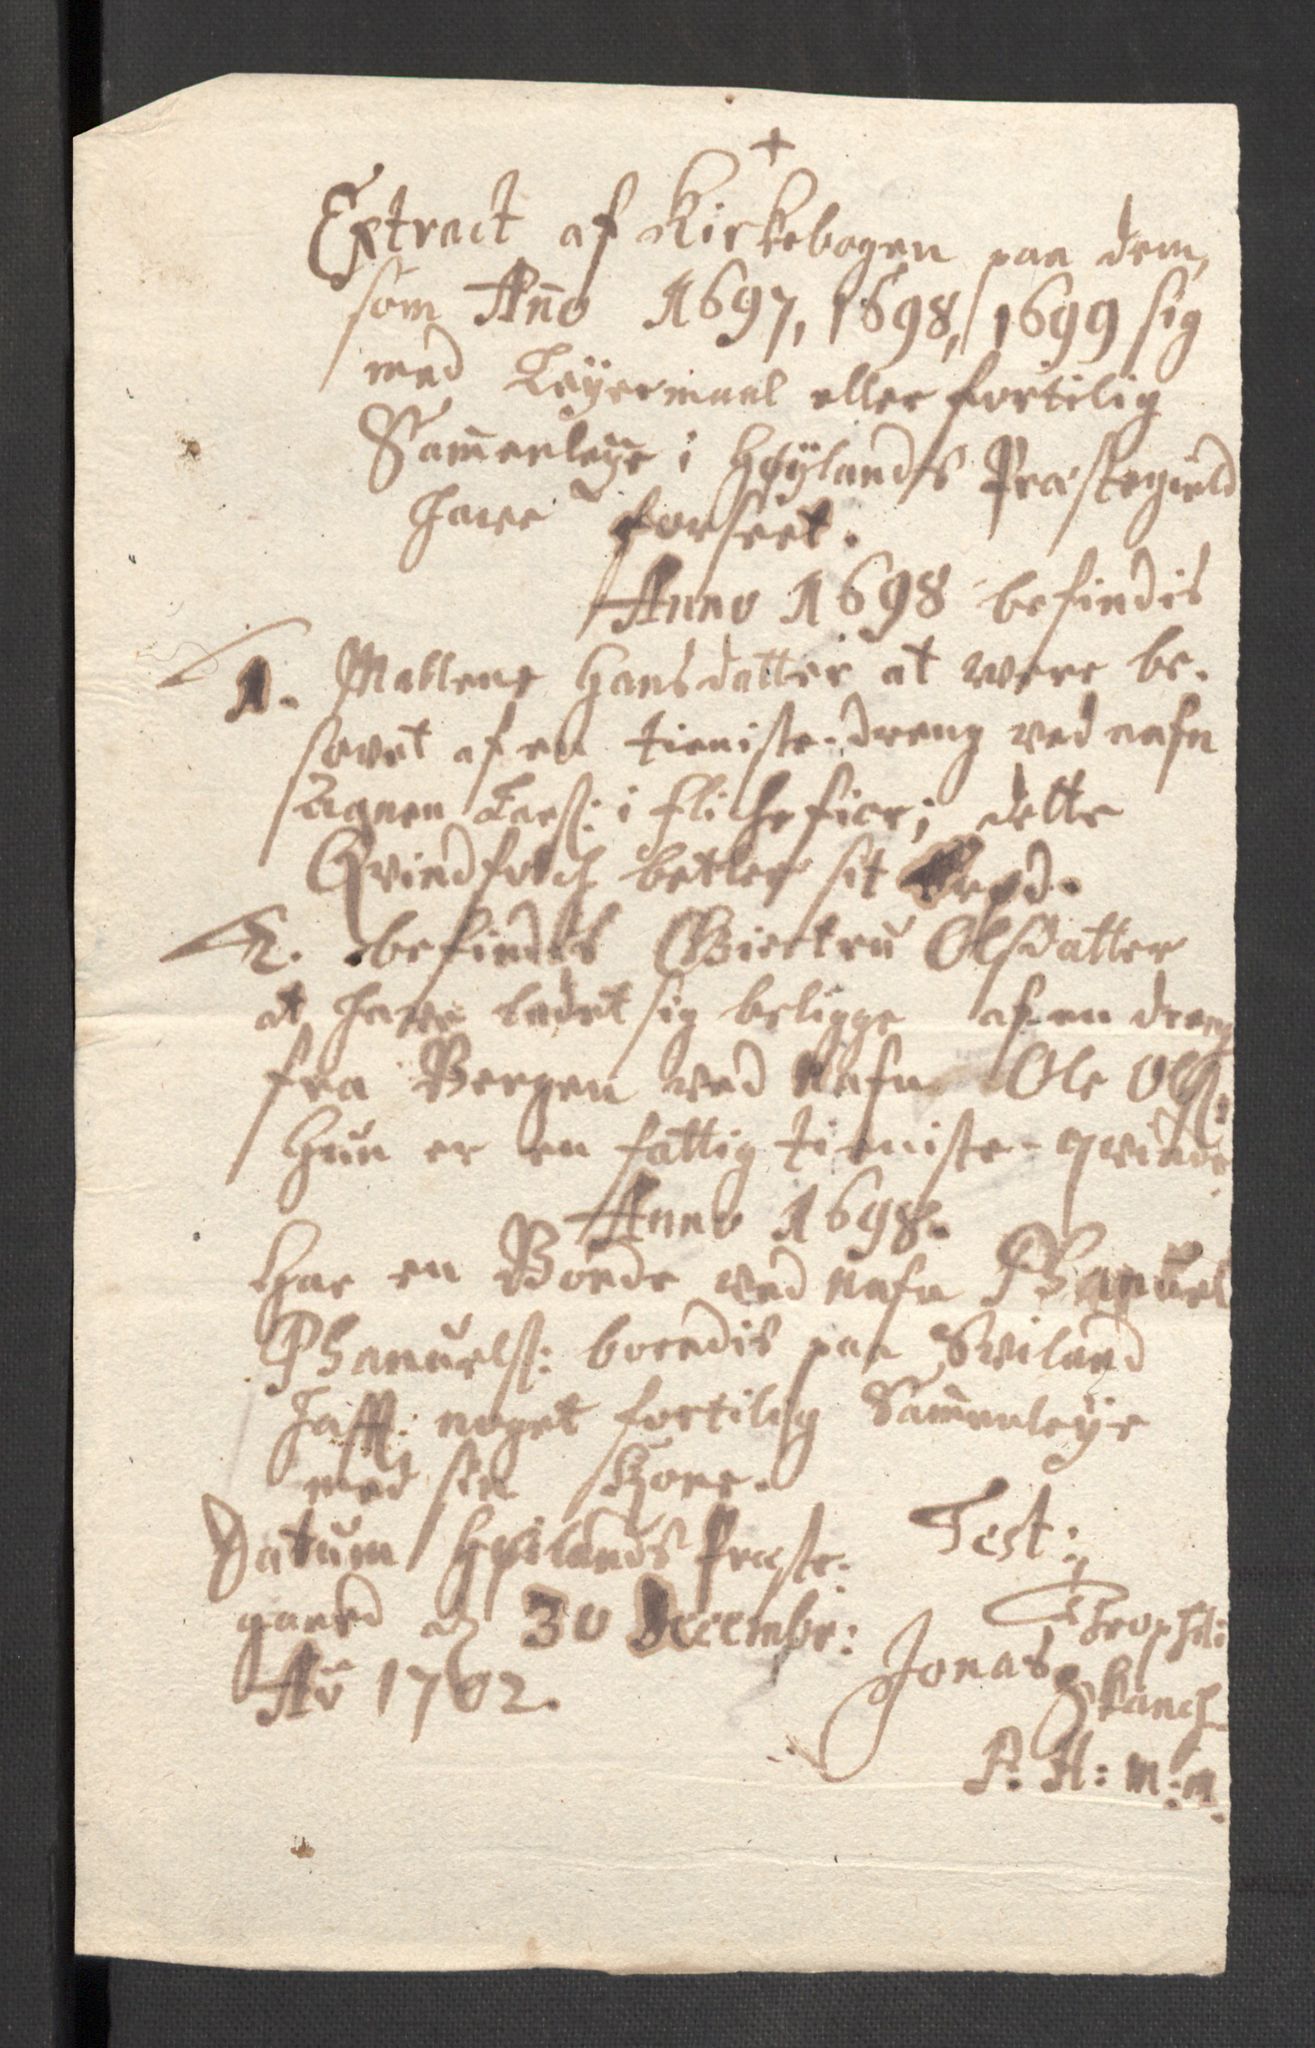 Extract af Kirkebogen paa dem,
som Año 1697, 1698, 1699 sig
med Leÿermaal eller fortilig
Sam̄enleÿe i Høÿlands Præstegield
have forseet.
Anno 1698 befindis
1. Mallene Hansdatter at were be-
sovet af en tieniste-dreng ved nafn
Aanen Larß: i Flichefier; dette
Qvindfolch betler sit brød.
2. befindis Giertru Olsdatter
at have ladet sig beligge af en dreng
fra Bergen ved Nafn Ole Olß:
Hun er en fattig tieniste-qvinde
Anno 1698.
Har en Bonde ved nafn Phanuel
Phanuelß: boendis paa Sviland
hafft noget fortilig Sam̄enleÿe
med sin Kone.
Datum Høilands Præste-
gaard d 30 Decembr:
Aō 1702.
Test:
Jonas Theophili
Skanch
P. H: m:m.